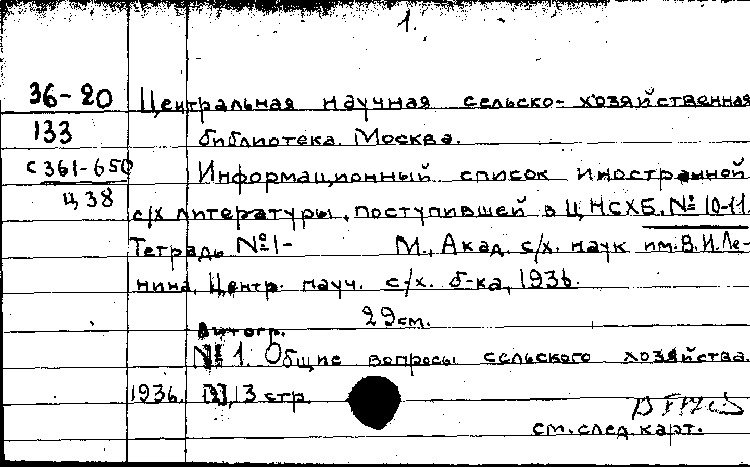 1.
36-20 Центральная научная сельско-хозяйственная
133 библиотека. Москва.
с361-650 Информационный список иностранной
Ц38 с/х литературы, поступившей в ЦНСХБ. № 10-11.
Тетрадь №1- М., Акад. с/х. наук им. В. И. Ле-
нина, Центр. науч. с/х. б-ка, 1936.
29см.
Литогр.
№ 1. Общие вопросы сельского хозяйства.
1936. [2], 3 стр.
см. след. карт.